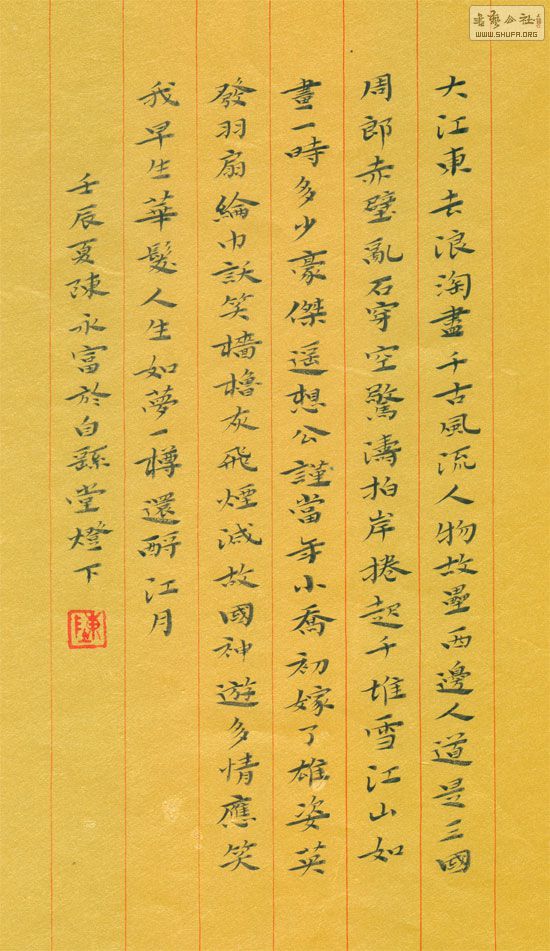 大江東去浪淘盡千古風流人物故壘西邊人道是三國
周郎赤壁亂石穿空驚濤拍岸捲起千堆雪江山如
畫一時多少豪傑遥想公謹當年小喬初嫁了雄姿英
發羽扇綸巾談笑檣櫓灰飛煙滅故國神遊多情應笑
我早生華髮人生如夢一樽還酹江月
壬辰夏陳永富於白繇堂燈下
書藝公社
WWW.SHUFA.ORG